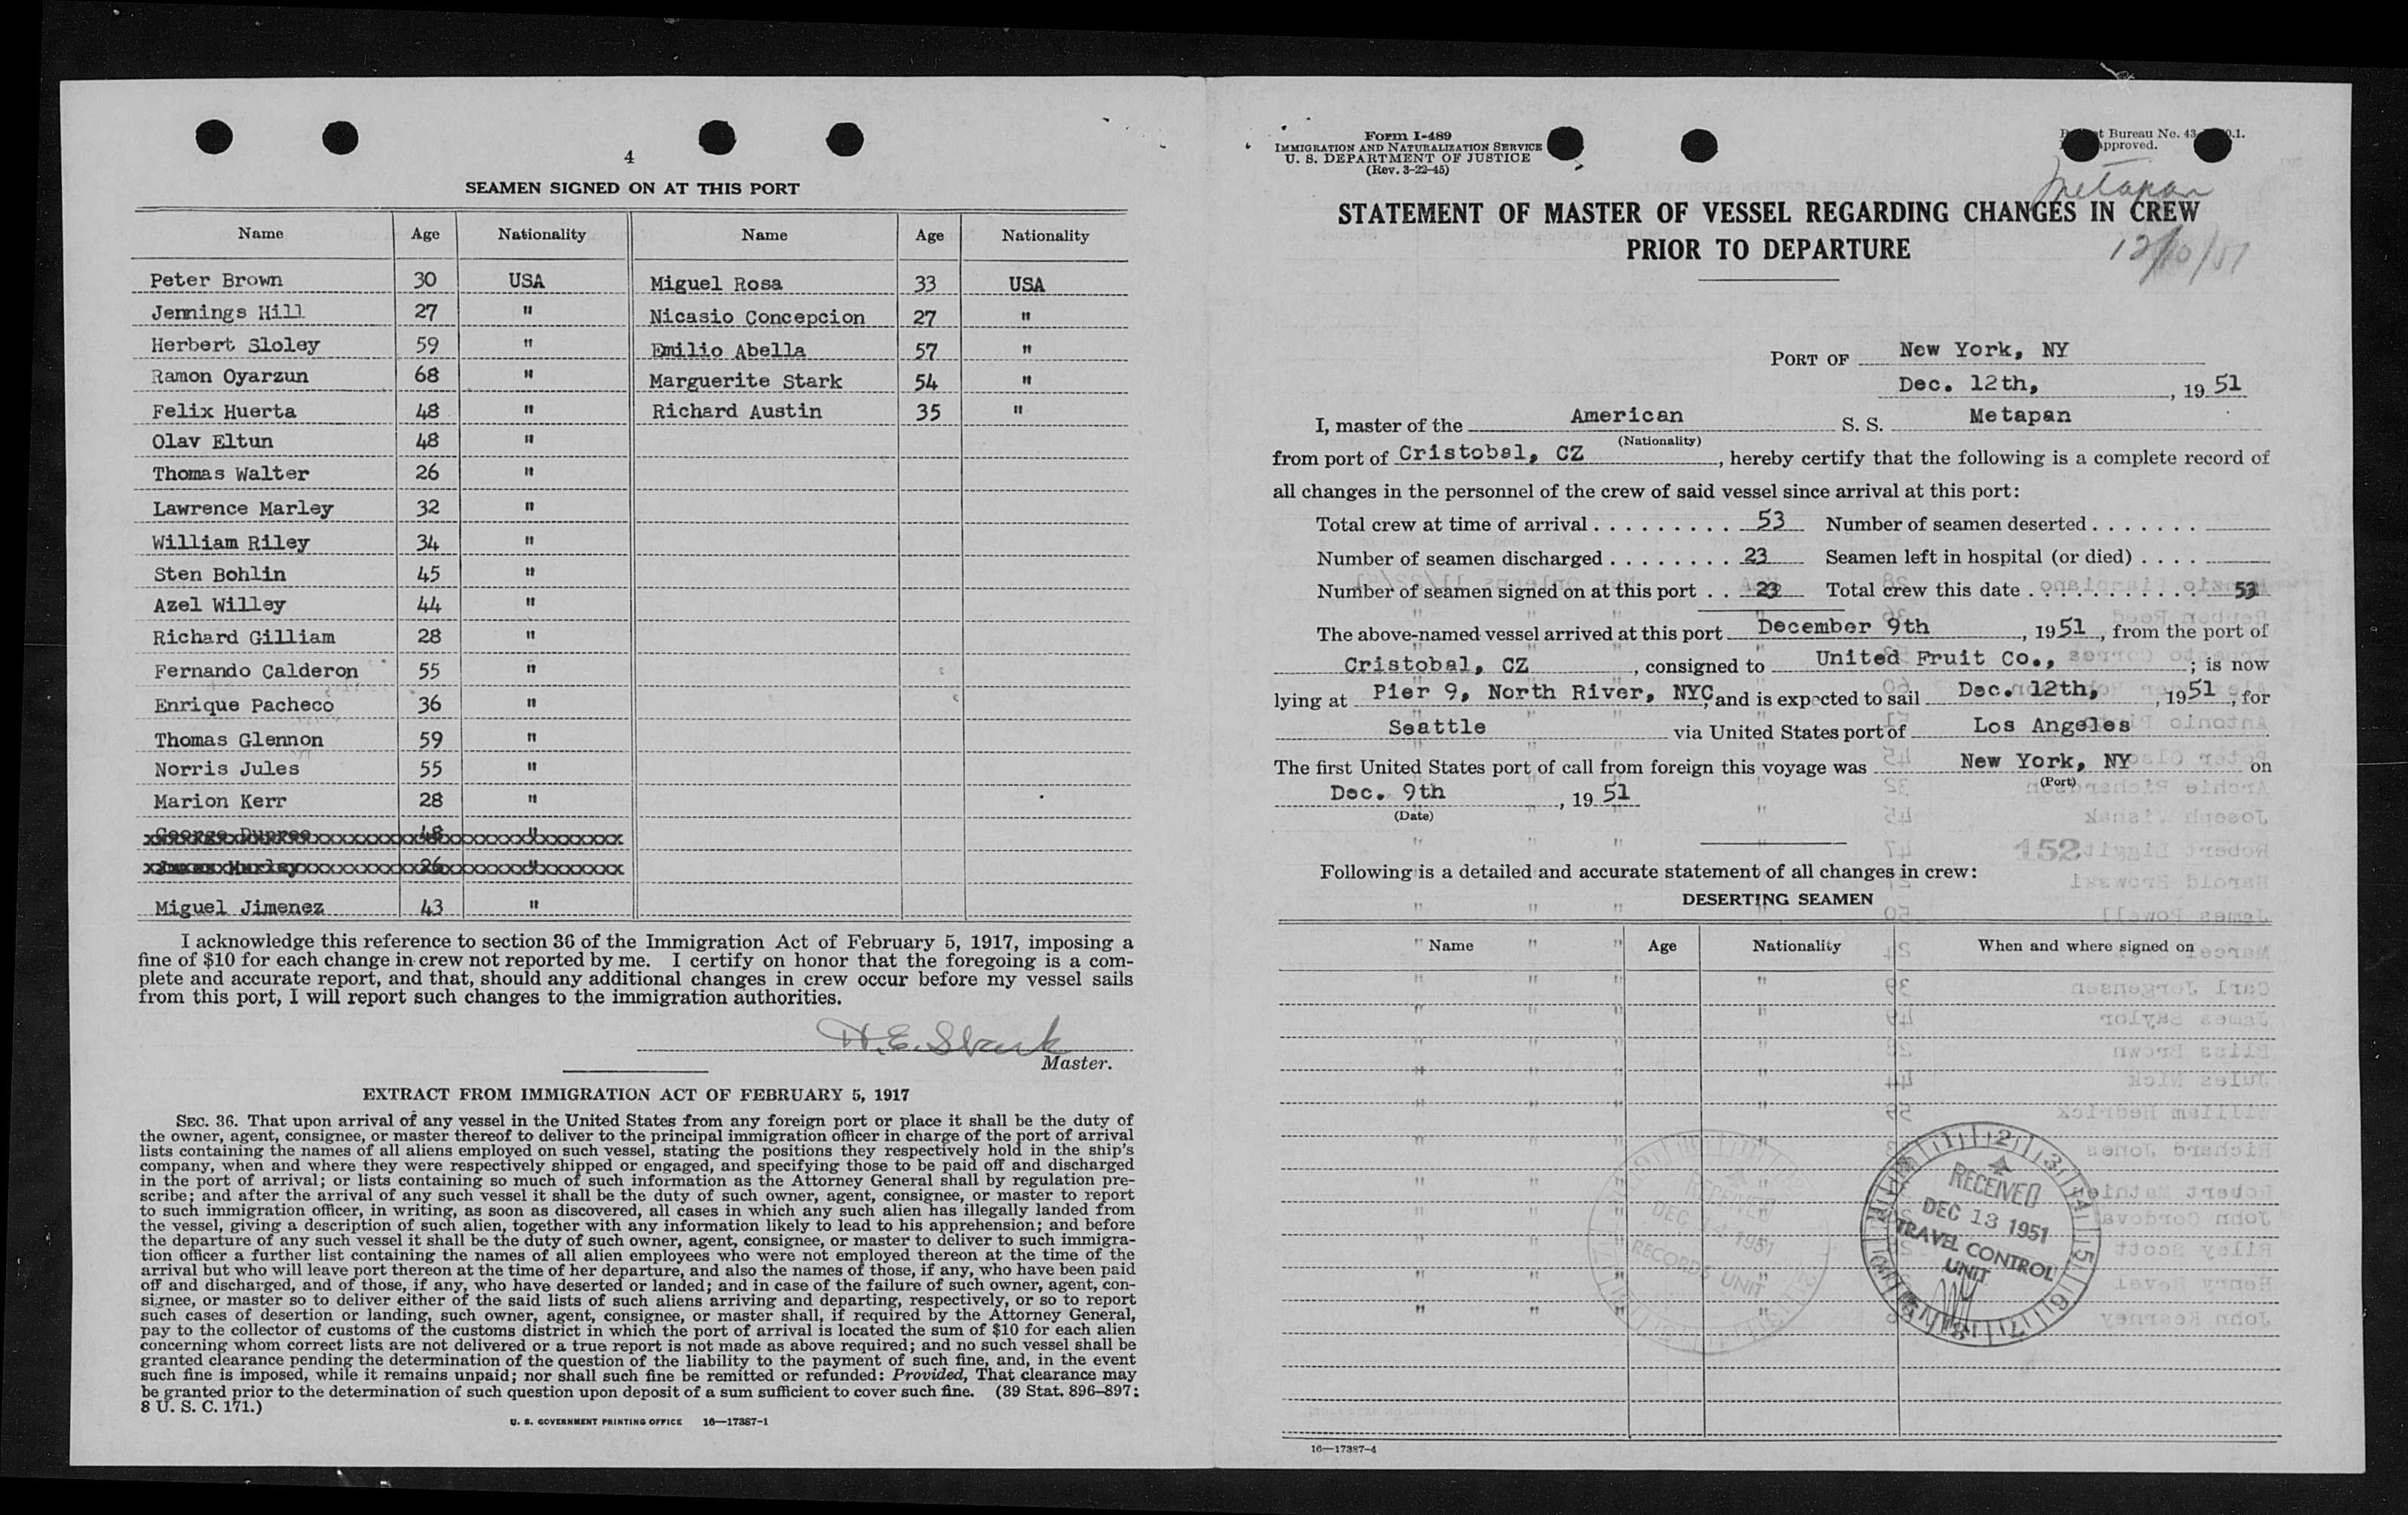 4
SEAMEN SIGNED ON AT THIS PORT
Name Age Nationality Name Age Nationality
Peter Brown 30 USA Miguel Rosa 33 USA
Jennings Hill 27 " Nicasio Concepcion 27 "
Herbert Sloley 59 " Emilio Abella 57 "
Ramon Oyarzun 68 " Marguerite Stark 54 "
Felix Huerta 48 " Richard Austin 35 "
Olav Eltun 48 "
Thomas Walter 26 "
Lawrence Marley 32 "
William Riley 34 "
Sten Bohlin 45 "
Azel Willey 44 "
Richard Gilliam 28 "
Fernando Calderon 55 "
Enrique Pacheco 36 "
Thomas Glennon 59 "
Norris Jules 55 "
Marion Kerr 28 "
George Dupree 48 "
26 "
Miguel Jimenez 43 "
I acknowledge this reference to section 36 of the Immigration Act of February 5, 1917, imposing a
fine of $10 for each change in crew not reported by me. I certify on honor that the foregoing is a com-
plete and accurate report, and that, should any additional changes in crew occur before my vessel sails
from this port, I will report such changes to the immigration authorities.
H. E. Stark
Master.
EXTRACT FROM IMMIGRATION ACT OF FEBRUARY 5, 1917
SEC. 36. That upon arrival of any vessel in the United States from any foreign port or place it shall be the duty of
the owner, agent, consignee, or master thereof to deliver to the principal immigration officer in charge of the port of arrival
lists containing the names of all aliens employed on such vessel, stating the positions they respectively hold in the ship's
company, when and where they were respectively shipped or engaged, and specifying those to be paid off and discharged
in the port of arrival; or lists containing so much of such information as the Attorney General shall by regulation pre-
scribe; and after the arrival of any such vessel it shall be the duty of such owner, agent, consignee, or master to report
to such immigration officer, in writing, as soon as discovered, all cases in which any such alien has illegally landed from
the vessel, giving a description of such alien, together with any information likely to lead to his apprehension; and before
the departure of any such vessel it shall be the duty of such owner, agent, consignee, or master to deliver to such immigra-
tion officer a further list containing the names of all alien employees who were not employed thereon at the time of the
arrival but who will leave port thereon at the time of her departure, and also the names of those, if any, who have been paid
off and discharged, and of those, if any, who have deserted or landed; and in case of the failure of such owner, agent, con-
signee, or master so to deliver either of the said lists of such aliens arriving and departing, respectively, or so to report
such cases of desertion or landing, such owner, agent, consignee, or master shall, if required by the Attorney General,
pay to the collector of customs of the customs district in which the port of arrival is located the sum of $10 for each alien
concerning whom correct lists are not delivered or a true report is not made as above required; and no such vessel shall be
granted clearance pending the determination of the question of the liability to the payment of such fine, and, in the event
such fine is imposed, while it remains unpaid; nor shall such fine be remitted or refunded: Provided, That clearance may
be granted prior to the determination of such question upon deposit of a sum sufficient to cover such fine. (39 Stat. 896–897;
8 U. S. C. 171.)
U. S. GOVERNMENT PRINTING OFFICE 16—17387-1
Form I-489
IMMIGRATION AND NATURALIZATION SERVICE
U. S. DEPARTMENT OF JUSTICE
(Rev. 3-22-45)
Bureau No. 43
approved.
Metapan
STATEMENT OF MASTER OF VESSEL REGARDING CHANGES IN CREW
PRIOR TO DEPARTURE
12/10/51
PORT OF New York, NY
Dec. 12th, , 19 51
I, master of the American S. S. Metapan
(Nationality)
from port of Cristobal, CZ , hereby certify that the following is a complete record of
all changes in the personnel of the crew of said vessel since arrival at this port:
Total crew at time of arrival . . . . . . . . . 53 Number of seamen deserted . . . . . . .
Number of seamen discharged . . . . . . . . 23 Seamen left in hospital (or died) . . . .
Number of seamen signed on at this port . . 23 Total crew this date . . . . . . . . . . 53
The above-named vessel arrived at this port December 9th , 19 51 , from the port of
Cristobal, CZ , consigned to United Fruit Co., ; is now
lying at Pier 9, North River, NYC, and is expected to sail Dec. 12th, , 19 51 , for
Seattle via United States port of Los Angeles
The first United States port of call from foreign this voyage was New York, NY on
(Port)
Dec. 9th , 19 51
(Date)
152
Following is a detailed and accurate statement of all changes in crew:
DESERTING SEAMEN
Name Age Nationality When and where signed on
RECEIVED
DEC 14 1951
RECORDS UNIT
RECEIVED
DEC 13 1951
TRAVEL CONTROL
UNIT
16—17387-4